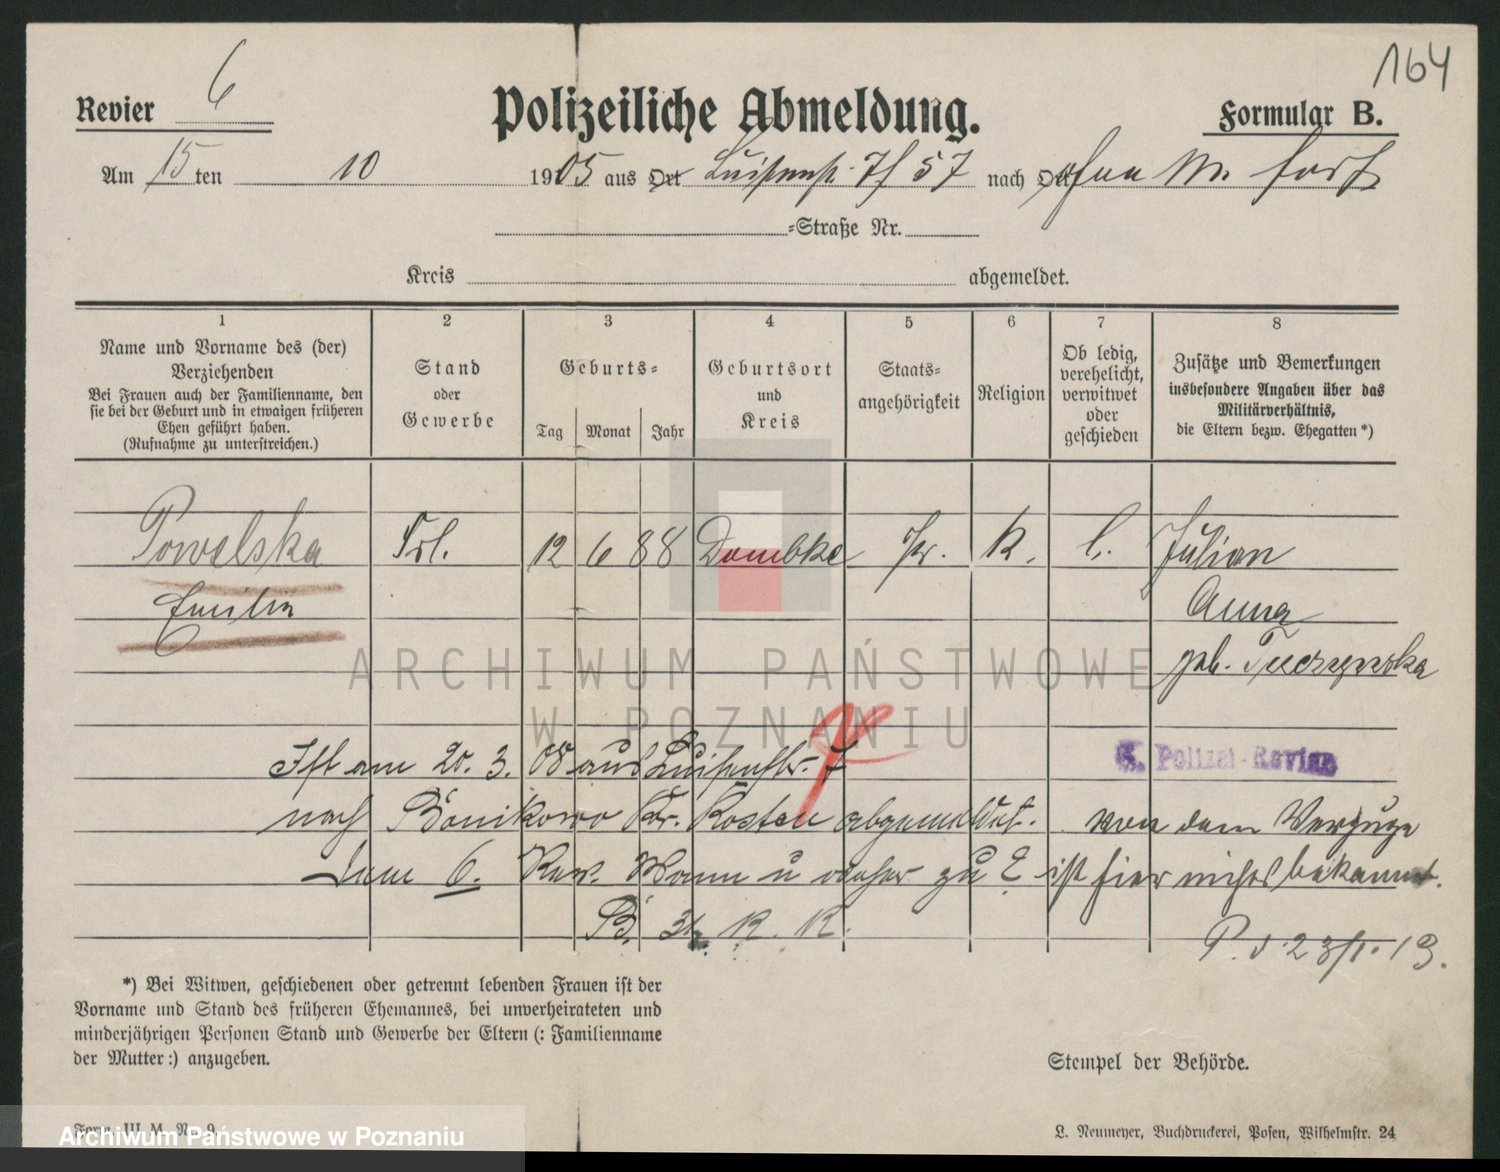 164
Revier 6
Polizeiliche Abmeldung.
Formular B.
Am 15 ten 10 1905 aus Ort Luisenstr. 7f 57 nach Ort ohne M. fort
=Straße Nr.
Kreis abgemeldet.
1 2 3 4 5 6 7 8
Name und Vorname des (der)
Verziehenden
Bei Frauen auch der Familienname, den
sie bei der Geburt und in etwaigen früheren
Ehen geführt haben.
(Rufnahme zu unterstreichen.)
Stand
oder
Gewerbe
Geburts=
Tag Monat Jahr
Geburtsort
und
Kreis
Staats=
angehörigkeit
Religion
Ob ledig,
verehelicht,
verwitwet
oder
geschieden
Zusätze und Bemerkungen
insbesondere Angaben über das
Militärverhältnis,
die Eltern bezw. Ehegatten *)
Powelska Frl. 12 6 88 Dombke Pr. K. l. Julian
Emilia Anna
geb.
Ist am 20. 3. 08 aus Luisenstr. 7
6. Polizei-Revier
nach Bonikowo Kr. Kosten abgemeldet. von dem Verzuge
Dem 6. Rev. Wann u woher zu E ist hier nichts bekannt.
B. 31 K. K.
P. d 23/1. 13.
*) Bei Witwen, geschiedenen oder getrennt lebenden Frauen ist der
Vorname und Stand des früheren Ehemannes, bei unverheirateten und
minderjährigen Personen Stand und Gewerbe der Eltern (: Familienname
der Mutter :) anzugeben.
Stempel der Behörde.
Form. III M. Nr. 9.
L. Neumeyer, Buchdruckerei, Posen, Wilhelmstr. 24
ARCHIWUM PAŃSTWOWE
W POZNANIU
Archiwum Państwowe w Poznaniu